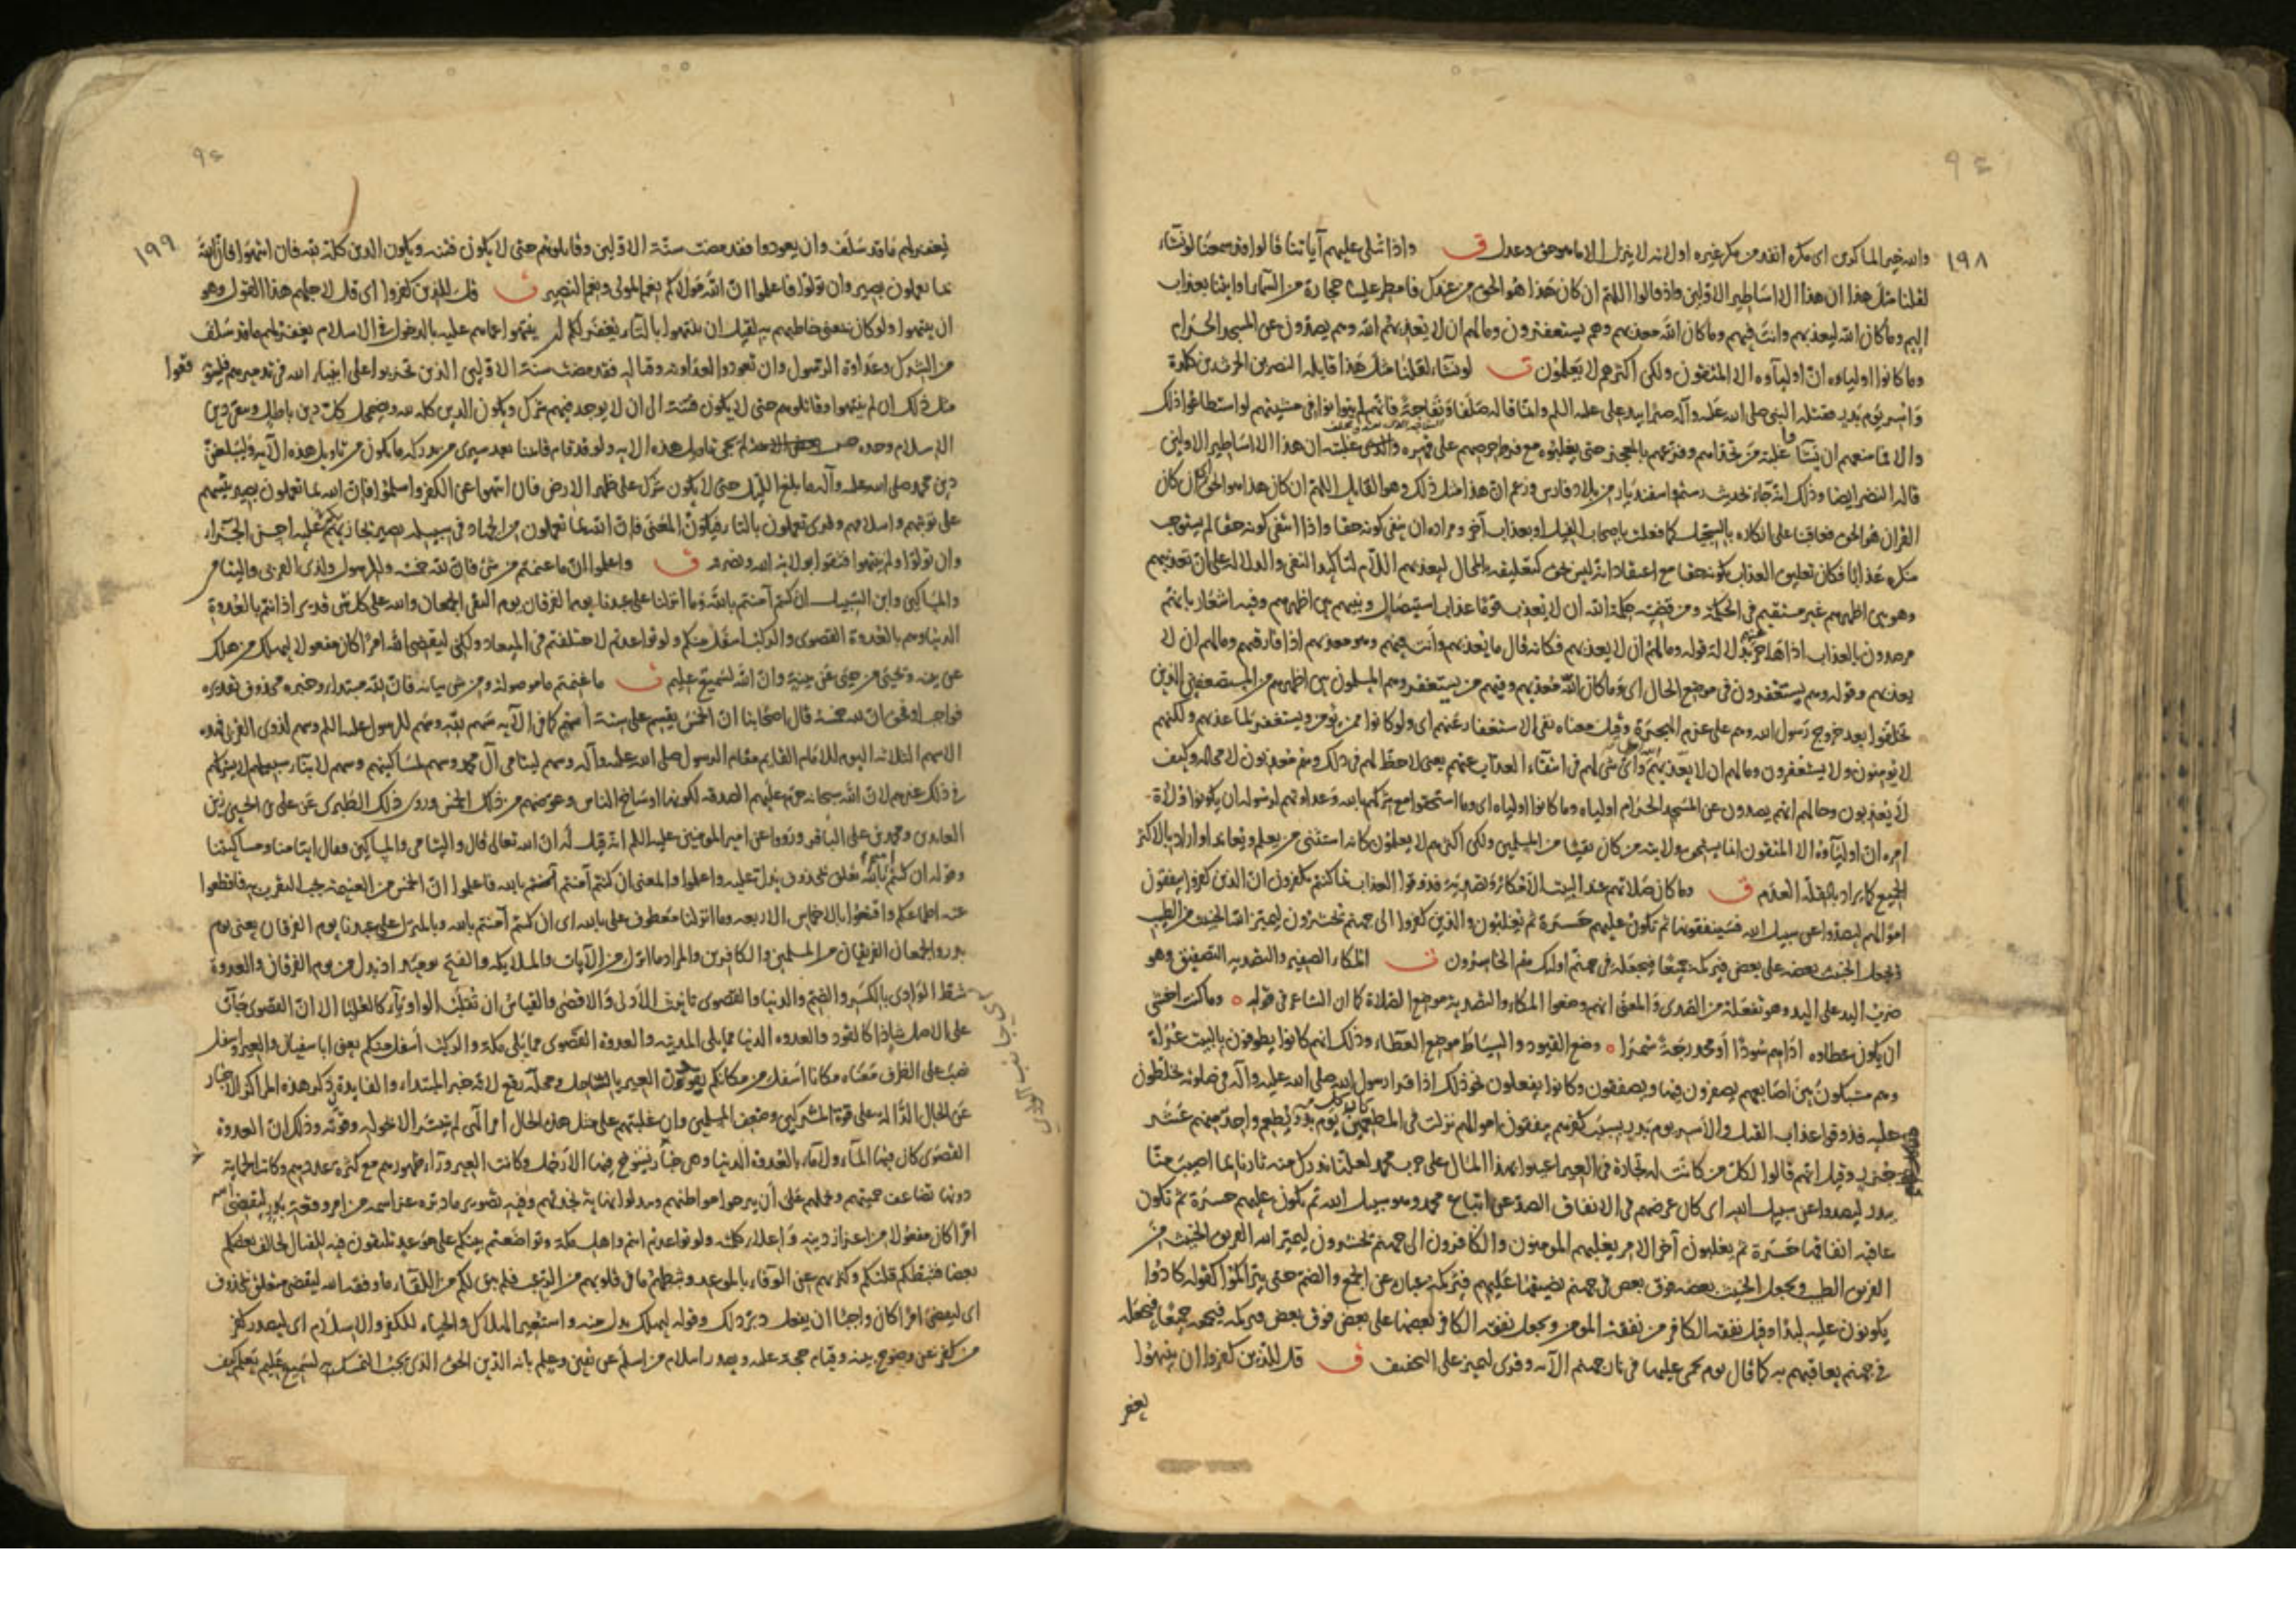 ٩٤
١٩٨
والله خير الماكرين اى مكره انفذ من مكر غيره او لانه لا ينزل الا ما هو حق وعدل ق واذا تتلى عليهم آياتنا قالوا قد سمعنا لو نشاء
لقلنا مثل هذا ان هذا الا اساطير الاولين واذ قالوا اللهم ان كان هذا هو الحق من عندك فامطر علينا حجارة من السماء او ائتنا بعذاب
اليم وما كان الله ليعذبهم وانت فيهم وما كان الله معذبهم وهم يستغفرون وما لهم ان لا يعذبهم الله وهم يصدون عن المسجد الحرام
وما كانوا اولياءه ان اولياؤه الا المتقون ولكن اكثرهم لا يعلمون ق لو نشاء لقلنا مثل هذا قايله النضر بن الحرث بن كلدة
واسر يوم بدر فقتله النبى صلى الله عليه وآله صبرا بيد على عليه السلم وانما قاله صلفا ونفاجة فانهم لم يتوانوا فى مشيتهم لو استطاعوا ذلك
والا فما منعهم ان يشآ غلبة من تحداهم وقرعهم بالعجز حتى يغلبوه مع فرط حرصهم على قهره ان هذا الا اساطير الاولين
قاله النضر ايضا وذلك انه جاء بحديث رستم واسفنديار من بلاد فارس وزعم ان هذا مثل ذلك وهو القايل اللهم ان كان هذا هو الحق اى ان كان
القران هو الحق فعاقبنا على انكاره بالسجيل كما فعلت باصحاب الفيل او بعذاب آخر ومراده ان ينفى كونه حقا واذا انتفى كونه حقا لم يستوجب
منكره عذابا فكان تعليق العذاب بكونه حقا مع اعتقاد انه ليس بحق كتعليقه بالمحال ليعذبهم اللام لتاكيد النفى والدلالة على ان تعذيبهم
وهو بين اظهرهم غير مستقيم فى الحكمة ومن قضية حكمة الله ان لا يعذب قوما عذاب استيصال ونبيهم بين اظهرهم وفيه اشعار بانهم
مرصدون بالعذاب اذا هاجر عنهم بدلالة قوله وما لهم ان لا يعذبهم فكانه قال ما يعذبهم وانت فيهم وهو معذبهم اذا فارقتهم وما لهم ان لا
يعذبهم وقوله وهم يستغفرون فى موضع الحال اى وما كان الله معذبهم وفيهم من يستغفر وهم المسلمون بين اظهرهم من المستضعفين الذين
تخلفوا بعد خروج رسول الله وهم على عزم الهجرة وقيل معناه نفى الاستغفار عنهم اى ولو كانوا ممن يؤمن ويستغفر لما عذبهم ولكنهم
لا يؤمنون ولا يستغفرون وما لهم ان لا يعذبهم الله واى شى لهم فى انتفاء العذاب عنهم يعنى لا حظ لهم فى ذلك وهم معذبون لا محالة وكيف
لا يعذبون وحالهم انهم يصدون عن المسجد الحرام وما كانوا اولياءه اى وما استحقوا مع شركهم بالله وعداوتهم لرسوله ان يكونوا ولاة
امره ان اولياؤه الا المتقون انما يستحق ولايته من كان تقيا من المسلمين ولكن اكثرهم لا يعلمون كانه استثنى من يعلم ويعاند او اراد بالاكثر
الجميع كما يراد بالقلة العدم ق وما كان صلاتهم عند البيت الا مكاء وتصدية فذوقوا العذاب بما كنتم تكفرون ان الذين كفروا ينفقون
اموالهم ليصدوا عن سبيل الله فسينفقونها ثم تكون عليهم حسرة ثم يغلبون والذين كفروا الى جهنم تحشرون ليميز الله الخبيث من الطيب
ويجعل الخبيث بعضه على بعض فيركمه جميعا فيجعله فى جهنم اولئك هم الخاسرون ق المكاء الصفير والتصدية التصفيق وهو
ضرب اليد على اليد وهو تفعلة من الصدى والمعنى انهم وضعوا المكاء والتصدية موضع الصلاة كما ان الشاعر فى قوله وما كنت اخشى
ان يكون عطاوه اداهم سودا او محدرجة سمرا وضع القيود والسياط موضع العطاء وذلك انهم كانوا يطوفون بالبيت عراة
وهم مشبكون بين اصابعهم يصفرون فيها ويصفقون وكانوا يفعلون نحو ذلك اذا قرا رسول الله صلى الله عليه وآله فى صلوته يخلطون
عليه فذوقوا عذاب القتل والاسر يوم بدر بسبب كفركم ينفقون اموالهم نزلت فى المطعمين يوم بدر كان يطعم كل واحد منهم عشر
جزر وقيل انهم قالوا لكل من كانت له تجارة فى العير اعينوا بهذا المال على حرب محمد لعلنا ندرك منه ثارنا بما اصيب منا
ببدر ليصدوا عن سبيل الله اى كان غرضهم فى الانفاق الصد عن اتباع محمد وهو سبيل الله ثم تكون عليهم حسرة ثم تكون
عاقبة انفاقها حسرة ثم يغلبون آخر الامر يغلبهم المومنون والكافرون الى جهنم تحشرون ليميز الله الفريق الخبيث من
الفريق الطيب ويجعل الخبيث بعضه فوق بعض فى جهنم يضيقها عليهم فيركمه عبارة عن الجمع والضم حتى يتراكموا كقوله كادوا
يكونون عليه لبدا وقيل نفقة الكافر من نفقة المومن ويجعل نفقة الكافر بعضها على بعض فوق بعض فيركمه فيجمعه جميعا فيجعله
فى جهنم يعاقبهم به كما قال يوم يحمى عليها فى نار جهنم الآية وقرى ليميز على التخفيف ق قل للذين كفروا ان ينتهوا
يغفر
٩٤
١٩٩
يغفر لهم ما قد سلف وان يعودوا فقد مضت سنة الاولين وقاتلوهم حتى لا يكون فتنة ويكون الدين كله لله فان انتهوا فان الله
بما يعملون بصير وان تولوا فاعلموا ان الله مولاكم نعم المولى ونعم النصير ق قل للذين كفروا اى قل لاجلهم هذا القول وهو
ان ينتهوا ولو كان بمعنى خاطبهم به لقيل ان تنتهوا بالتاء يغفر لكم ان ينتهوا عما هم عليه بالدخول فى الاسلام يغفر لهم ما قد سلف
من الشرك وعداوة الرسول وان يعودوا لعداوته وقتاله فقد مضت سنة الاولين الذين تحزبوا على انبياء الله فى تدميرهم فليتوقعوا
مثل ذلك ان لم ينتهوا وقاتلوهم حتى لا يكون فتنة الى ان لا يوجد فيهم شرك ويكون الدين كله لله ويضمحل كل دين باطل ويبقى دين
الاسلام وحده لم يجى تاويل هذه الاية ولو قد قام قائمنا بعد سيرى من يدركه ما يكون من تاويل هذه الآية وليبلغن
دين محمد صلى الله عليه وآله ما بلغ الليل حتى لا يكون شرك على ظهر الارض فان انتهوا عن الكفر واسلموا فان الله بما تعملون بصير يثيبهم
على توبتهم واسلامهم وقرى تعملون بالتاء فيكون المعنى فان الله بما تعملون من الجهاد فى سبيله بصير يجازيكم عليه احسن الجزاء
وان تولوا ولم ينتهوا فثقوا بولاية الله ونصرته ق واعلموا ان ما غنمتم من شى فان لله خمسه وللرسول ولذى القربى واليتامى
والمساكين وابن السبيل ان كنتم آمنتم بالله وما انزلنا على عبدنا يوم الفرقان يوم التقى الجمعان والله على كل شى قدير اذ انتم بالعدوة
الدنيا وهم بالعدوة القصوى والركب اسفل منكم ولو تواعدتم لاختلفتم فى الميعاد ولكن ليقضى الله امرا كان مفعولا ليهلك من هلك
عن بينة ويحيى من حى عن بينة وان الله لسميع عليم ق ما غنمتم ما موصولة ومن شى بيانه فان لله مبتداء وخبره محذوف تقديره
فواجب او فحق ان لله خمسه قال اصحابنا ان الخمس يقسم على ستة اسهم كما فى الآية سهم لله وسهم للرسول عليه السلم وسهم لذوى القربى فهذه
الاسهم الثلاثة اليوم للامام القايم مقام الرسول صلى الله عليه وآله وسهم ليتامى آل محمد وسهم لمساكينهم وسهم لابناء سبيلهم لا يشركهم
فى ذلك غيرهم لان الله سبحانه حرم عليهم الصدقة لكونها اوساخ الناس وعوضهم من ذلك الخمس وروى ذلك الطبرى عن على بن الحسين زين
العابدين ومحمد بن على الباقر ورووا عن امير المومنين عليه السلم انه قيل له ان الله تعالى قال واليتامى والمساكين فقال ايتامنا ومساكيننا
وقوله ان كنتم آمنتم بالله تعلق بمحذوف يدل عليه واعلموا والمعنى ان كنتم آمنتم بالله فاعلموا ان الخمس من الغنيمة يجب التقرب به فاقطعوا
عنه اطماعكم واقنعوا بالاخماس الاربعة وما انزلنا معطوف على بالله اى ان كنتم آمنتم بالله وبالمنزل على عبدنا يوم الفرقان يعنى يوم
بدر والجمعان الفريقان من المسلمين والكافرين والمراد ما انزل من الآيات والملايكة والفتح يومئذ اذ بدل من يوم الفرقان والعدوة
شط الوادى بالكسر والضم والدنيا والقصوى تانيث الادنى والاقصى والقياس ان تقلب الواو ياء كالعليا الا ان القصوى جآت
على الاصل شاذا كالقود والعدوة الدنيا مما يلى المدينة والعدوة القصوى مما يلى مكة والركب اسفل منكم يعنى ابا سفيان والعير واسفل
نصب على الظرف معناه مكانا اسفل من مكانكم يقودون العير بالساحل ومحله رفع لانه خبر المبتداء والفايدة فى ذكر هذه المراكز الاخبار
عن الحال الدالة على قوة المشركين وضعف المسلمين وان غلبتهم على مثل هذه الحال امر الهى لم يتيسر الا بحوله وقوته وذلك ان العدوة
القصوى كان فيها الماء ولا ماء بالعدوة الدنيا وهى خبار تسوخ فيها الارجل وكانت العير وراء ظهورهم مع كثرة عددهم وكانت الحماية
دونها تضاعف حميتهم وتحملهم على ان يبرحوا مواطنهم ويبذلوا نهاية نجدتهم وفيه تصوير ما دبره عز اسمه من امر وقعة بدر ليقضى
امرا كان مفعولا من اعزاز دينه واعلاء كلمته ولو تواعدتم انتم واهل مكة وتواضعتم بينكم على موعد تلتقون فيه للقتال لخالف بعضكم
بعضا فثبطكم قلتكم وكثرتهم عن الوفاء بالموعد وثبطهم ما فى قلوبهم من الرعب فلم يتفق لكم من التلقاء ما وفقه الله ليقضى متعلق بمحذوف
اى ليقضى امرا كان واجبا ان يفعل دبر ذلك وقوله ليهلك بدل منه واستعير الهلاك والحياة للكفر والاسلام اى ليصدر كفر
من كفر عن وضوح بينة وقيام حجة عليه ويصدر اسلام من اسلم عن يقين وعلم بانه الدين الحق الذى يجب التمسك به لسميع عليم يعلم كيف